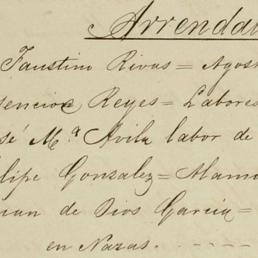 Arrenda
Faustino Rivas = Agost
sencion Reyes = Labores
sé Mª Avila labor de
lipe Gonzalez = Alam
uan de Dios Garcia =
en Nazas. - - - - -